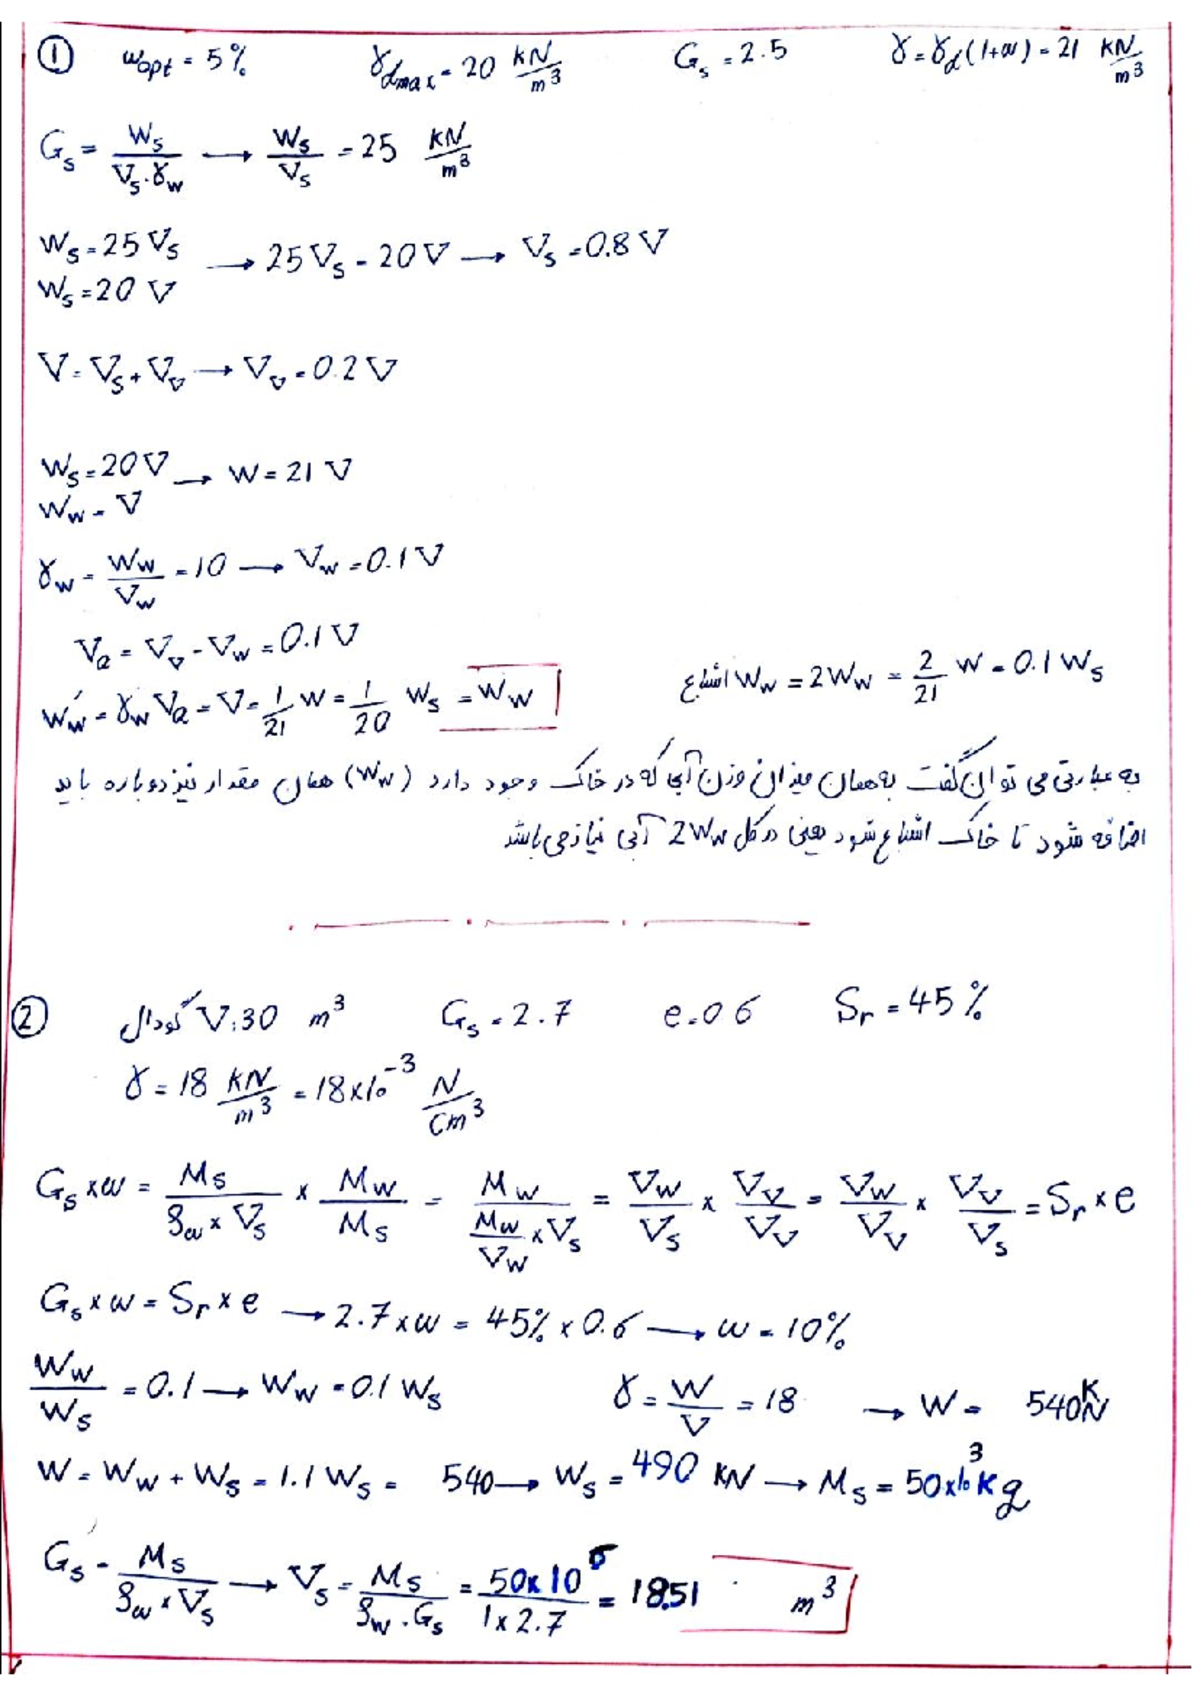 ① ω_opt = 5%    γ_dmax = 20 kN/m³    G_s = 2.5    γ = γ_d(1+ω) = 21 kN/m³
G_s = W_s / (V_s . γ_w) → W_s / V_s = 25 kN/m³
W_s = 25 V_s
W_s = 20 V → 25 V_s = 20 V → V_s = 0.8 V
V = V_s + V_v → V_v = 0.2 V
W_s = 20 V → W = 21 V
W_w = V
γ_w = W_w / V_w = 10 → V_w = 0.1 V
V_a = V_v - V_w = 0.1 V
W_w' = γ_w V_a = V = 1/21 W = 1/20 W_s = W_w
اشباع W_w = 2W_w = 2/21 W = 0.1 W_s
به عبارتی می توان گفت به همان میزان وزن آبی که در خاک وجود دارد (W_w) همان مقدار نیز دوباره باید
اضافه شود تا خاک اشباع شود یعنی در کل 2W_w آبی نیاز می باشد
② گودال V: 30 m³    G_s = 2.7    e = 0 6    S_r = 45%
γ = 18 kN/m³ = 18×10⁻³ N/cm³
G_s × ω = M_s / (ρ_w × V_s) × M_w / M_s = M_w / (M_w/V_w × V_s) = V_w/V_s × V_v/V_v = V_w/V_v × V_v/V_s = S_r × e
G_s × ω = S_r × e → 2.7 × ω = 45% × 0.6 → ω = 10%
W_w / W_s = 0.1 → W_w = 0.1 W_s    γ = W / V = 18 → W = 540 kN
W = W_w + W_s = 1.1 W_s = 540 → W_s = 490 kN → M_s = 50×10³ kg
G_s = M_s / (ρ_w × V_s) → V_s = M_s / (ρ_w . G_s) = 50×10⁶ / (1 × 2.7) = 18.51 m³